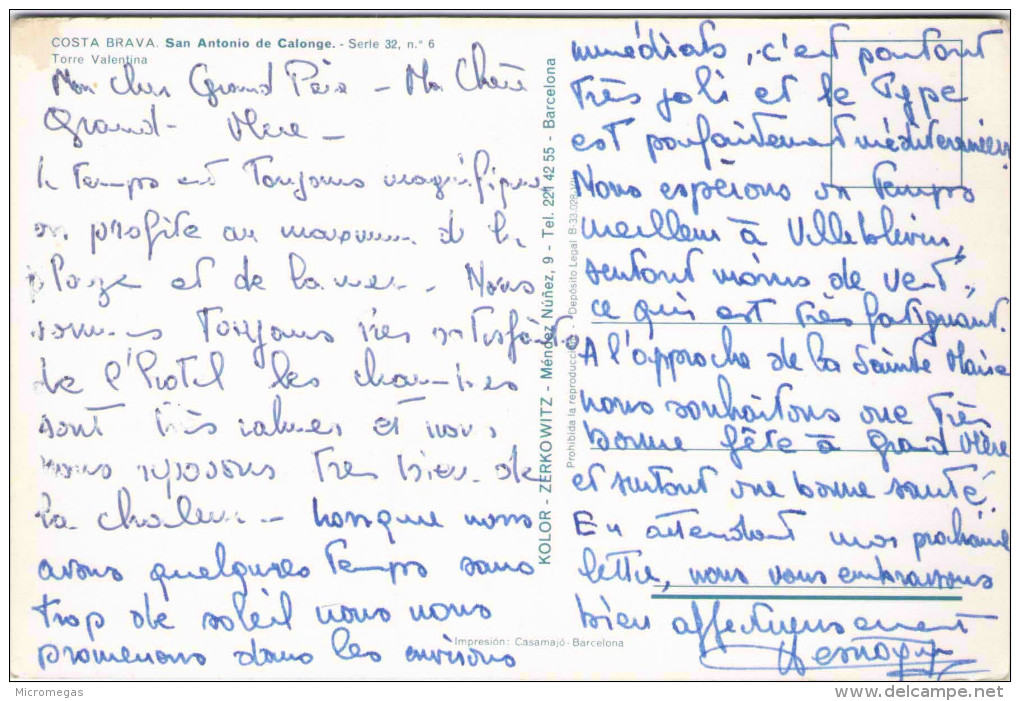 COSTA BRAVA. San Antonio de Calonge. - Serie 32, n.° 6
Torre Valentina
Mon cher Grand Père - Ma Chère
Grand- Mère -
le Temps est Toujours magnifique
on profite au maximum de la
plage et de la mer. Nous
sommes Toujours très satisfaits
de l'hotel les chambres
sont très calmes et nous
nous reposons Très bien de
la chaleur - Lorsque nous
avons quelques Temps sans
trop de soleil nous nous
promenons dans les environs
immédiats, c'est pourtant
très joli et le Type
est parfaitement méditerranéen
Nous espérons un Temps
meilleur à Villeblevin,
surtout moins de vent,
ce qui est très fatiguant.
A l'approche de la Sainte Marie
nous souhaitons une Très
bonne fête à grand Mère
et surtout une bonne santé.
En attendant une prochaine
lettre, nous vous embrassons
bien affectueusement
KOLOR - ZERKOWITZ - Méndez Núñez, 9 - Tel. 221 42 55 - Barcelona
Prohibida la reproducción - Depósito Legal B-33.028-VIII
Impresión: Casamajó - Barcelona
Micromegas
akpool.de